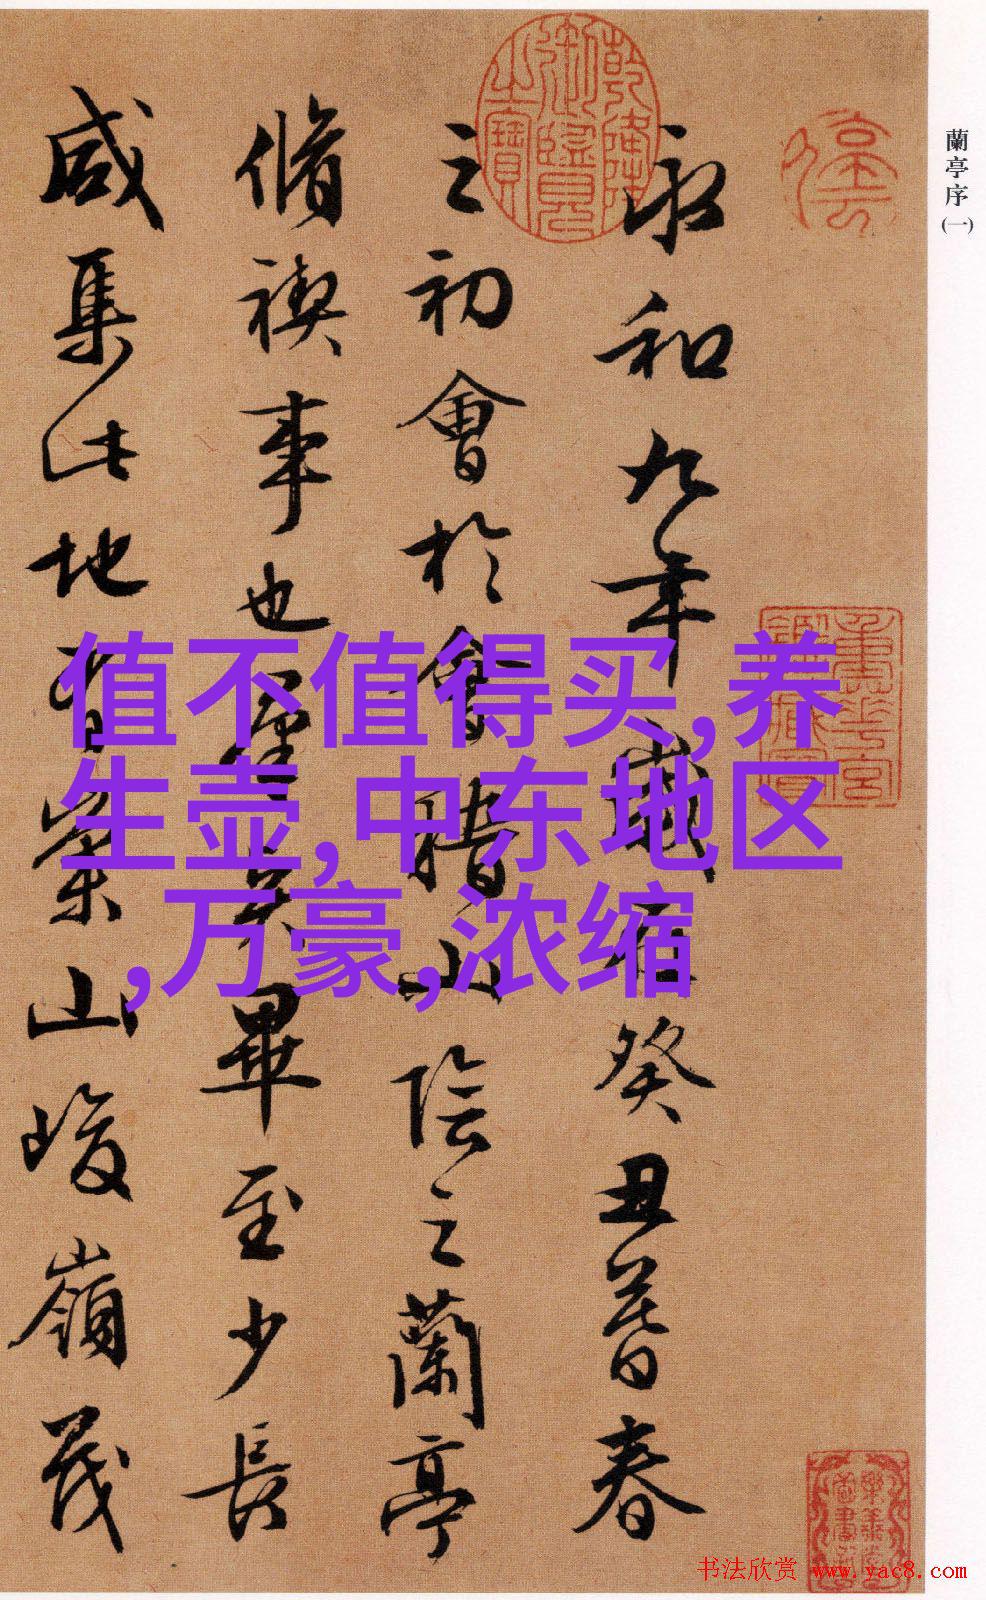 蘭亭序(一)
永和九年歲在癸丑暮春
之初會於會稽山陰之蘭亭
脩禊事也羣賢畢至少長
咸集此地有崇山峻嶺茂
乾隆御覽之寶
值不值得买,养
生壶,中东地区
,万豪,浓缩
书法欣赏 www.yac8.com